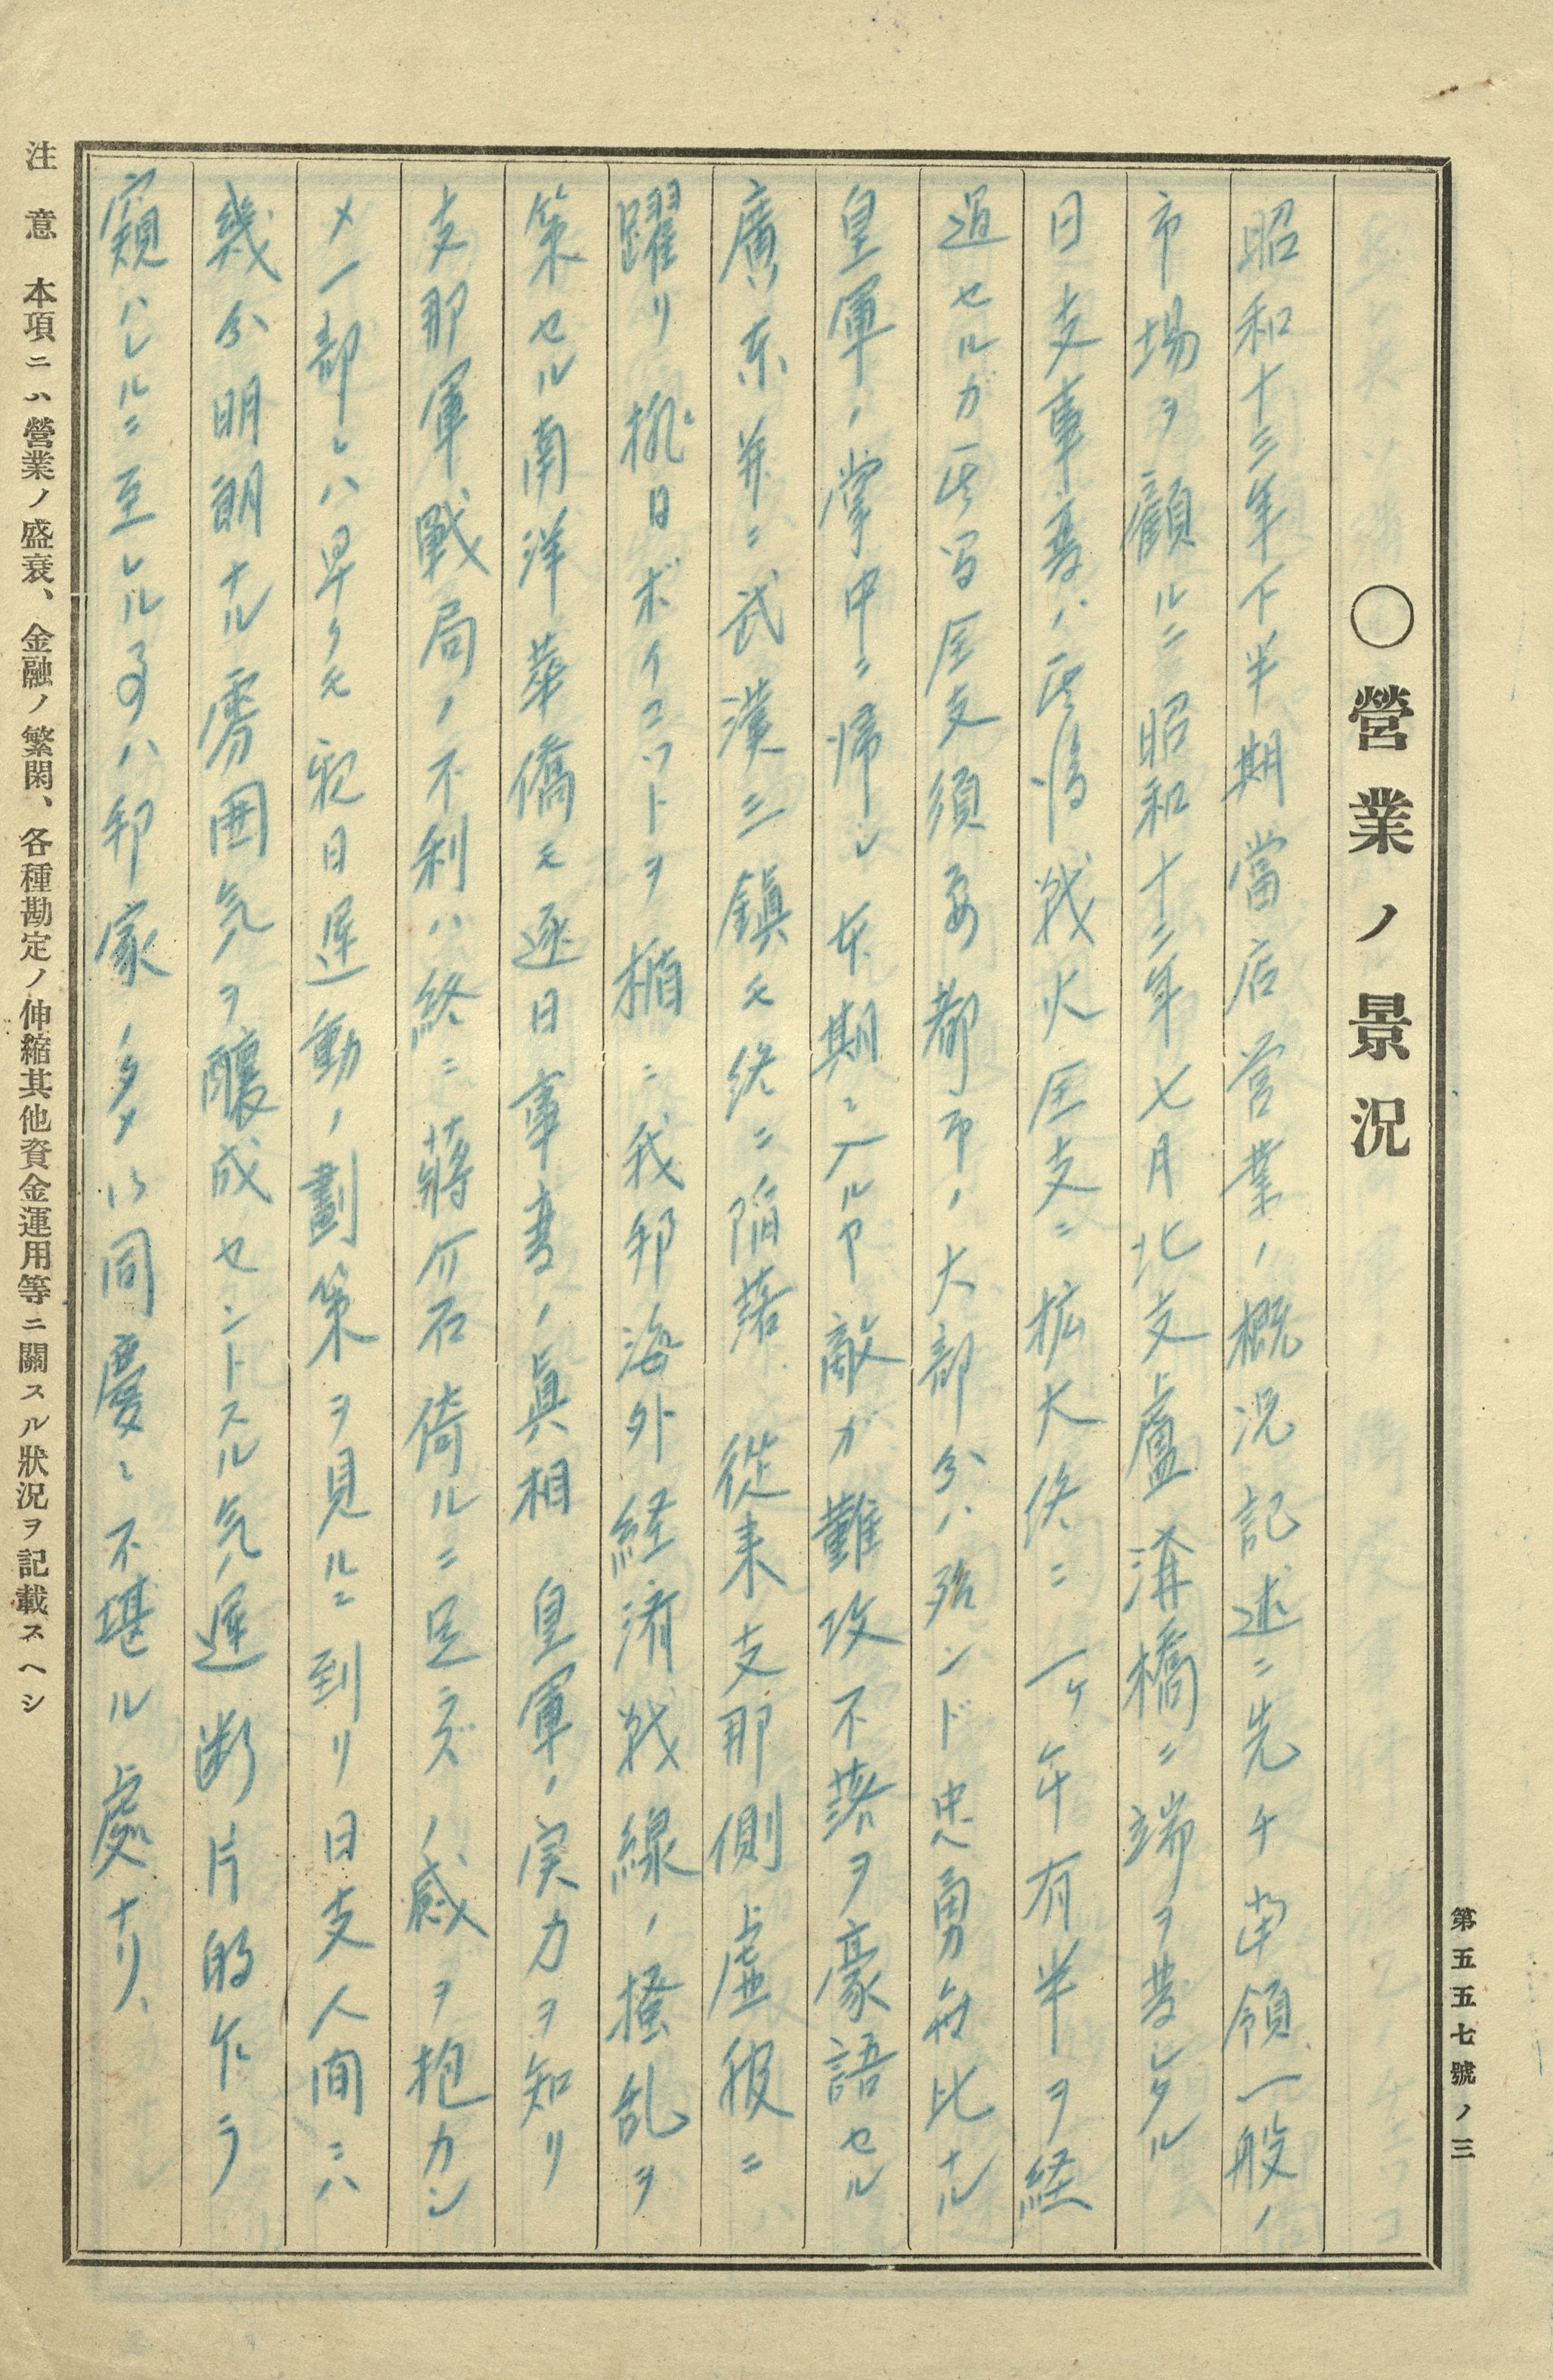 第五五七號ノ三
〇營業ノ景況
昭和十三年下半期當店営業ノ概況記述ニ先チ南領一般ノ
市場ヲ顧ルニ昭和十二年七月北支盧溝橋ニ端ヲ発シタル
日支事変ハ其后戦火全支ニ拡大終ニ一ケ年有半ヲ経
過セルガ其間全支須要都市ノ大部分ハ殆ンド忠勇無比ナル
皇軍ノ掌中ニ帰シ本期ニ入ルヤ敵ガ難攻不落ヲ豪語セル
廣东并ニ武漢三鎮モ終ニ陥落 従来支那側虚彼ニ
躍リ排日ボイコットヲ楯ニ我邦海外経済戦線ノ掻乱ヲ
策セル南洋華僑モ逐日事変ノ眞相 皇軍ノ実力ヲ知リ
支那軍戰局ノ不利ハ終ニ蒋介石倚ルニ足ラズノ感ヲ抱カシ
メ一部ニハ早クモ親日運動ノ劃策ヲ見ルニ到リ日支人間ニハ
幾分明朗ナル雰囲気ヲ醸成セントスル気運断片的乍ラ
窺ハレルニ至レル事ハ邦家ノタメ同慶ニ不堪ル處ナリ、
注意 本項ニハ營業ノ盛衰、金融ノ繁閑、各種勘定ノ伸縮其他資金運用等ニ關スル狀況ヲ記載スヘシ